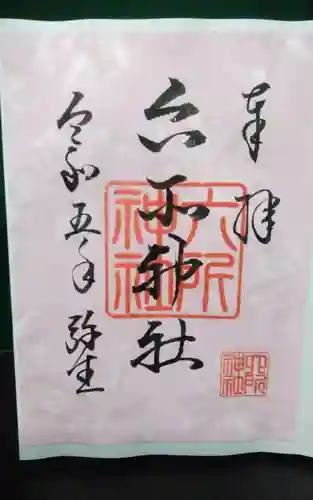 奉拝
六所神社
令和五年 弥生
六所
神社
六所
神社